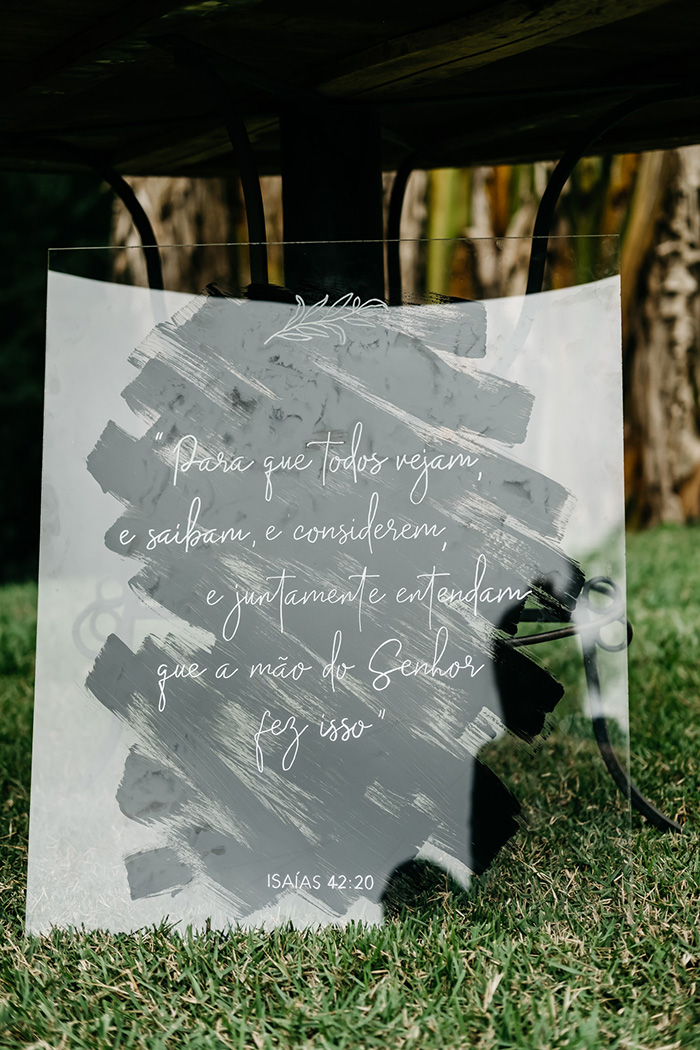 "Para que todos vejam,
e saibam, e considerem,
e juntamente entendam
que a mão do Senhor
fez isso"
ISAÍAS 42:20